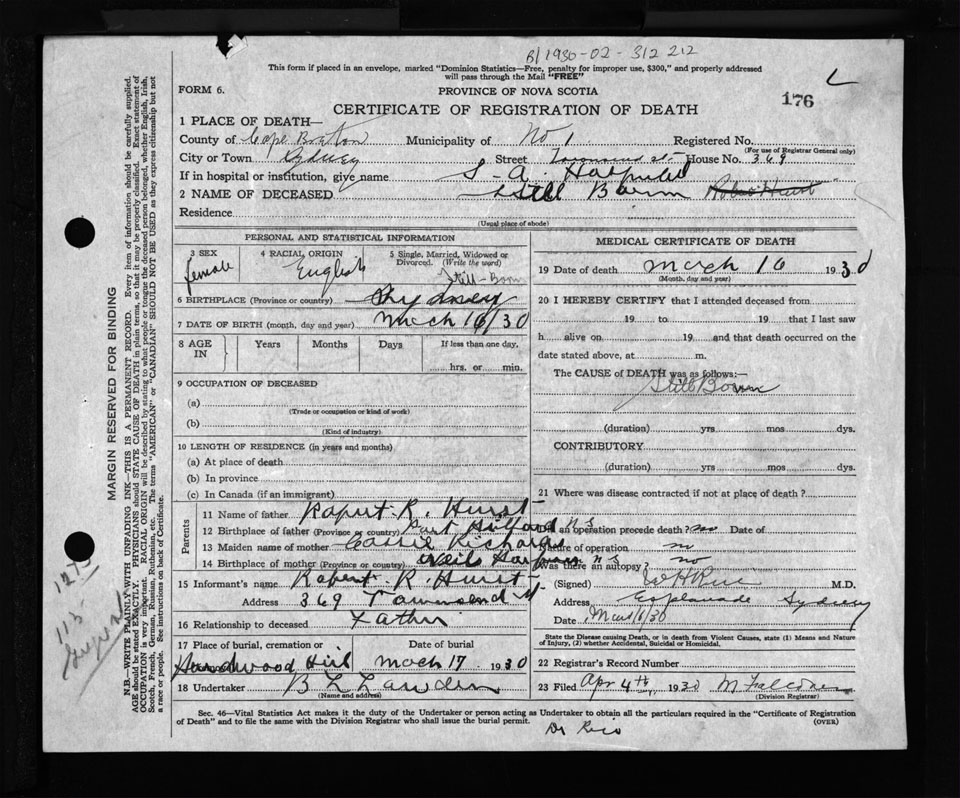 B/1930-02-312 212
This form if placed in an envelope, marked "Dominion Statistics—Free, penalty for improper use, $300," and properly addressed
will pass through the Mail "FREE"
FORM 6.
PROVINCE OF NOVA SCOTIA
176
CERTIFICATE OF REGISTRATION OF DEATH
1 PLACE OF DEATH—
County of Cape Breton Municipality of No 1 Registered No.
(For use of Registrar General only)
City or Town Sydney Street Townsend St House No. 369
If in hospital or institution, give name S-A. Hospital
2 NAME OF DECEASED Still Born
Residence
(Usual place of abode)
PERSONAL AND STATISTICAL INFORMATION
3 SEX female
4 RACIAL ORIGIN English
5 Single, Married, Widowed or Divorced. (Write the word) Still-Born
6 BIRTHPLACE (Province or country) Sydney
7 DATE OF BIRTH (month, day and year) March 16/30
8 AGE IN Years Months Days If less than one day, hrs. or min.
9 OCCUPATION OF DECEASED
(a)
(Trade or occupation or kind of work)
(b)
(Kind of industry)
10 LENGTH OF RESIDENCE (in years and months)
(a) At place of death
(b) In province
(c) In Canada (if an immigrant)
Parents
11 Name of father R. Hurst
12 Birthplace of father (Province or country) Port N S
13 Maiden name of mother Cassie Richards
14 Birthplace of mother (Province or country) Neils Harbour N S
15 Informant's name Robert R. Hurst
Address 369 Townsend St
16 Relationship to deceased Father
17 Place of burial, cremation or Hardwood Hill Date of burial March 17 1930
18 Undertaker
(Name and address)
MEDICAL CERTIFICATE OF DEATH
19 Date of death March 16 1930
(Month, day and year)
20 I HEREBY CERTIFY that I attended deceased from
19 to 19 that I last saw
h alive on 19 and that death occurred on the
date stated above, at m.
The CAUSE of DEATH was as follows:—
Still Born
(duration) yrs mos dys.
CONTRIBUTORY
(duration) yrs mos dys.
21 Where was disease contracted if not at place of death?
Did an operation precede death? no Date of
Nature of operation
Was there an autopsy? no
(Signed) M.D.
Address Esplanade Sydney
Date Mar 16/30
State the Disease causing Death, or in death from Violent Causes, state (1) Means and Nature
of Injury, (2) whether Accidental, Suicidal or Homicidal.
22 Registrar's Record Number
23 Filed Apr 4th 1930 M Falconer
(Division Registrar)
Sec. 46—Vital Statistics Act makes it the duty of the Undertaker or person acting as Undertaker to obtain all the particulars required in the "Certificate of Registration
of Death" and to file the same with the Division Registrar who shall issue the burial permit.
(OVER)
MARGIN RESERVED FOR BINDING
N.B.—WRITE PLAINLY WITH UNFADING INK—THIS IS A PERMANENT RECORD. Every item of information should be carefully supplied.
AGE should be stated EXACTLY. PHYSICIANS should STATE CAUSE OF DEATH in plain terms, so that it may be properly classified. Exact statement of
OCCUPATION is very important. RACIAL ORIGIN will be described by stating to what people or tongue the deceased person belonged, whether English, Irish,
Scotch, French, German, Russian, Ruthenian, etc. The terms "AMERICAN" or "CANADIAN" SHOULD NOT BE USED as they express citizenship but not
a race or people. See instructions on back of Certificate.